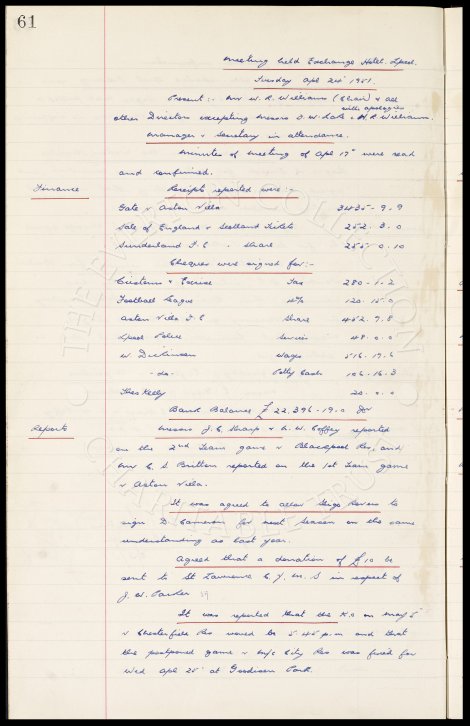 61
Meeting held Exchange Hotel. Lpool.
Tuesday Apl 24th 1951.
Present:- Mr W. R. Williams (Chair) & all
with apologies
other Directors excepting Messrs O. W. Lake & H. R. Williams.
Manager & Secretary in attendance.
Minutes of meeting of Apl 17th were read
and confirmed.
Finance
Receipts reported were:-
Gate v Aston Villa 3435 - 9 . 9
Sale of England v Scotland Tickets 252 . 3 . 0
Sunderland F. C. Share 255 . 0 . 10
Cheques were signed for:-
Customs & Excise Tax 280 - 1 . 2
Football League 120 . 15 . 0
Aston Villa F. C. Share 452 . 7 . 8
Lpool Police Services 48 . 0 . 0
W. Dickinson Wages 516 . 17 . 6
- do - Petty Cash 106 . 16 . 3
Theo Kelly 20 . 0 . 0
Bank Balance £22,396 - 19 . 0
Reports
Messrs J. C. Sharp & A. W. Coffey reported
on the 2nd Team game v Blackpool Res, and
Mr C. S. Britton reported on the 1st Team game
v Aston Villa.
It was agreed to allow Sligo Rovers to
sign D. Cameron for next season on the same
understanding as last year.
Agreed that a donation of £10 be
sent to St Lawrence C. Y. M. S in respect of
J. W. Parker
It was reported that the K.O on May 5th
v Chesterfield Res would be 5 45 p.m and that
the postponed game v M/c City Res was fixed for
Wed Apl 25th at Goodison Park.
THE EVERTON COLLECTION
CHARITABLE TRUST